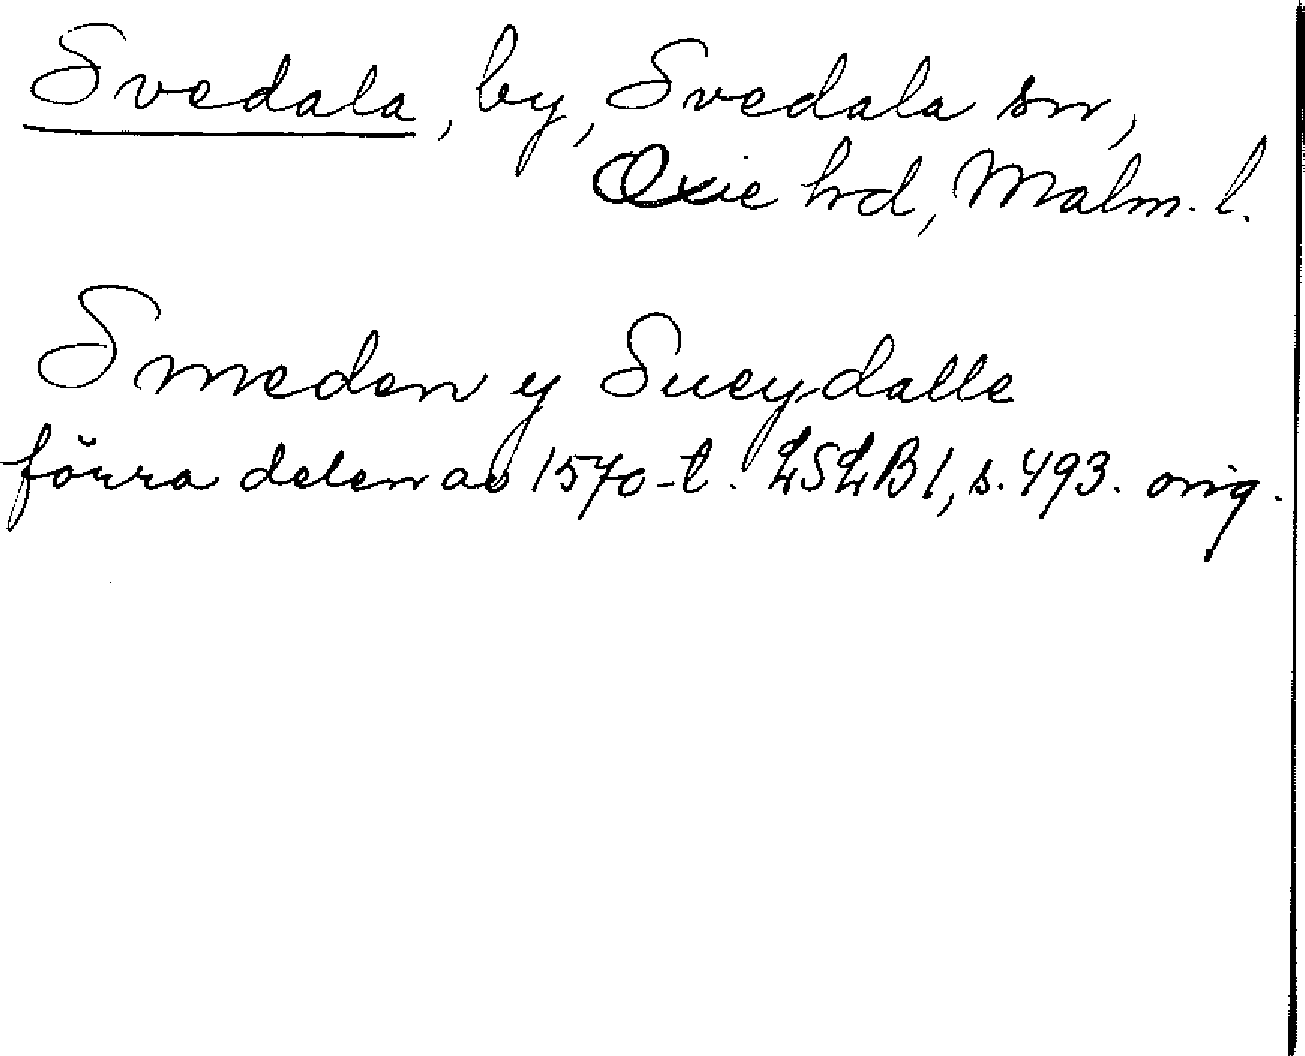 Svedala, by, Svedala sn,
Oxie hd, Malm. l.
Smeden y Sueydalle
förra delen av 1570-t. LSLB 1, s. 493. orig.